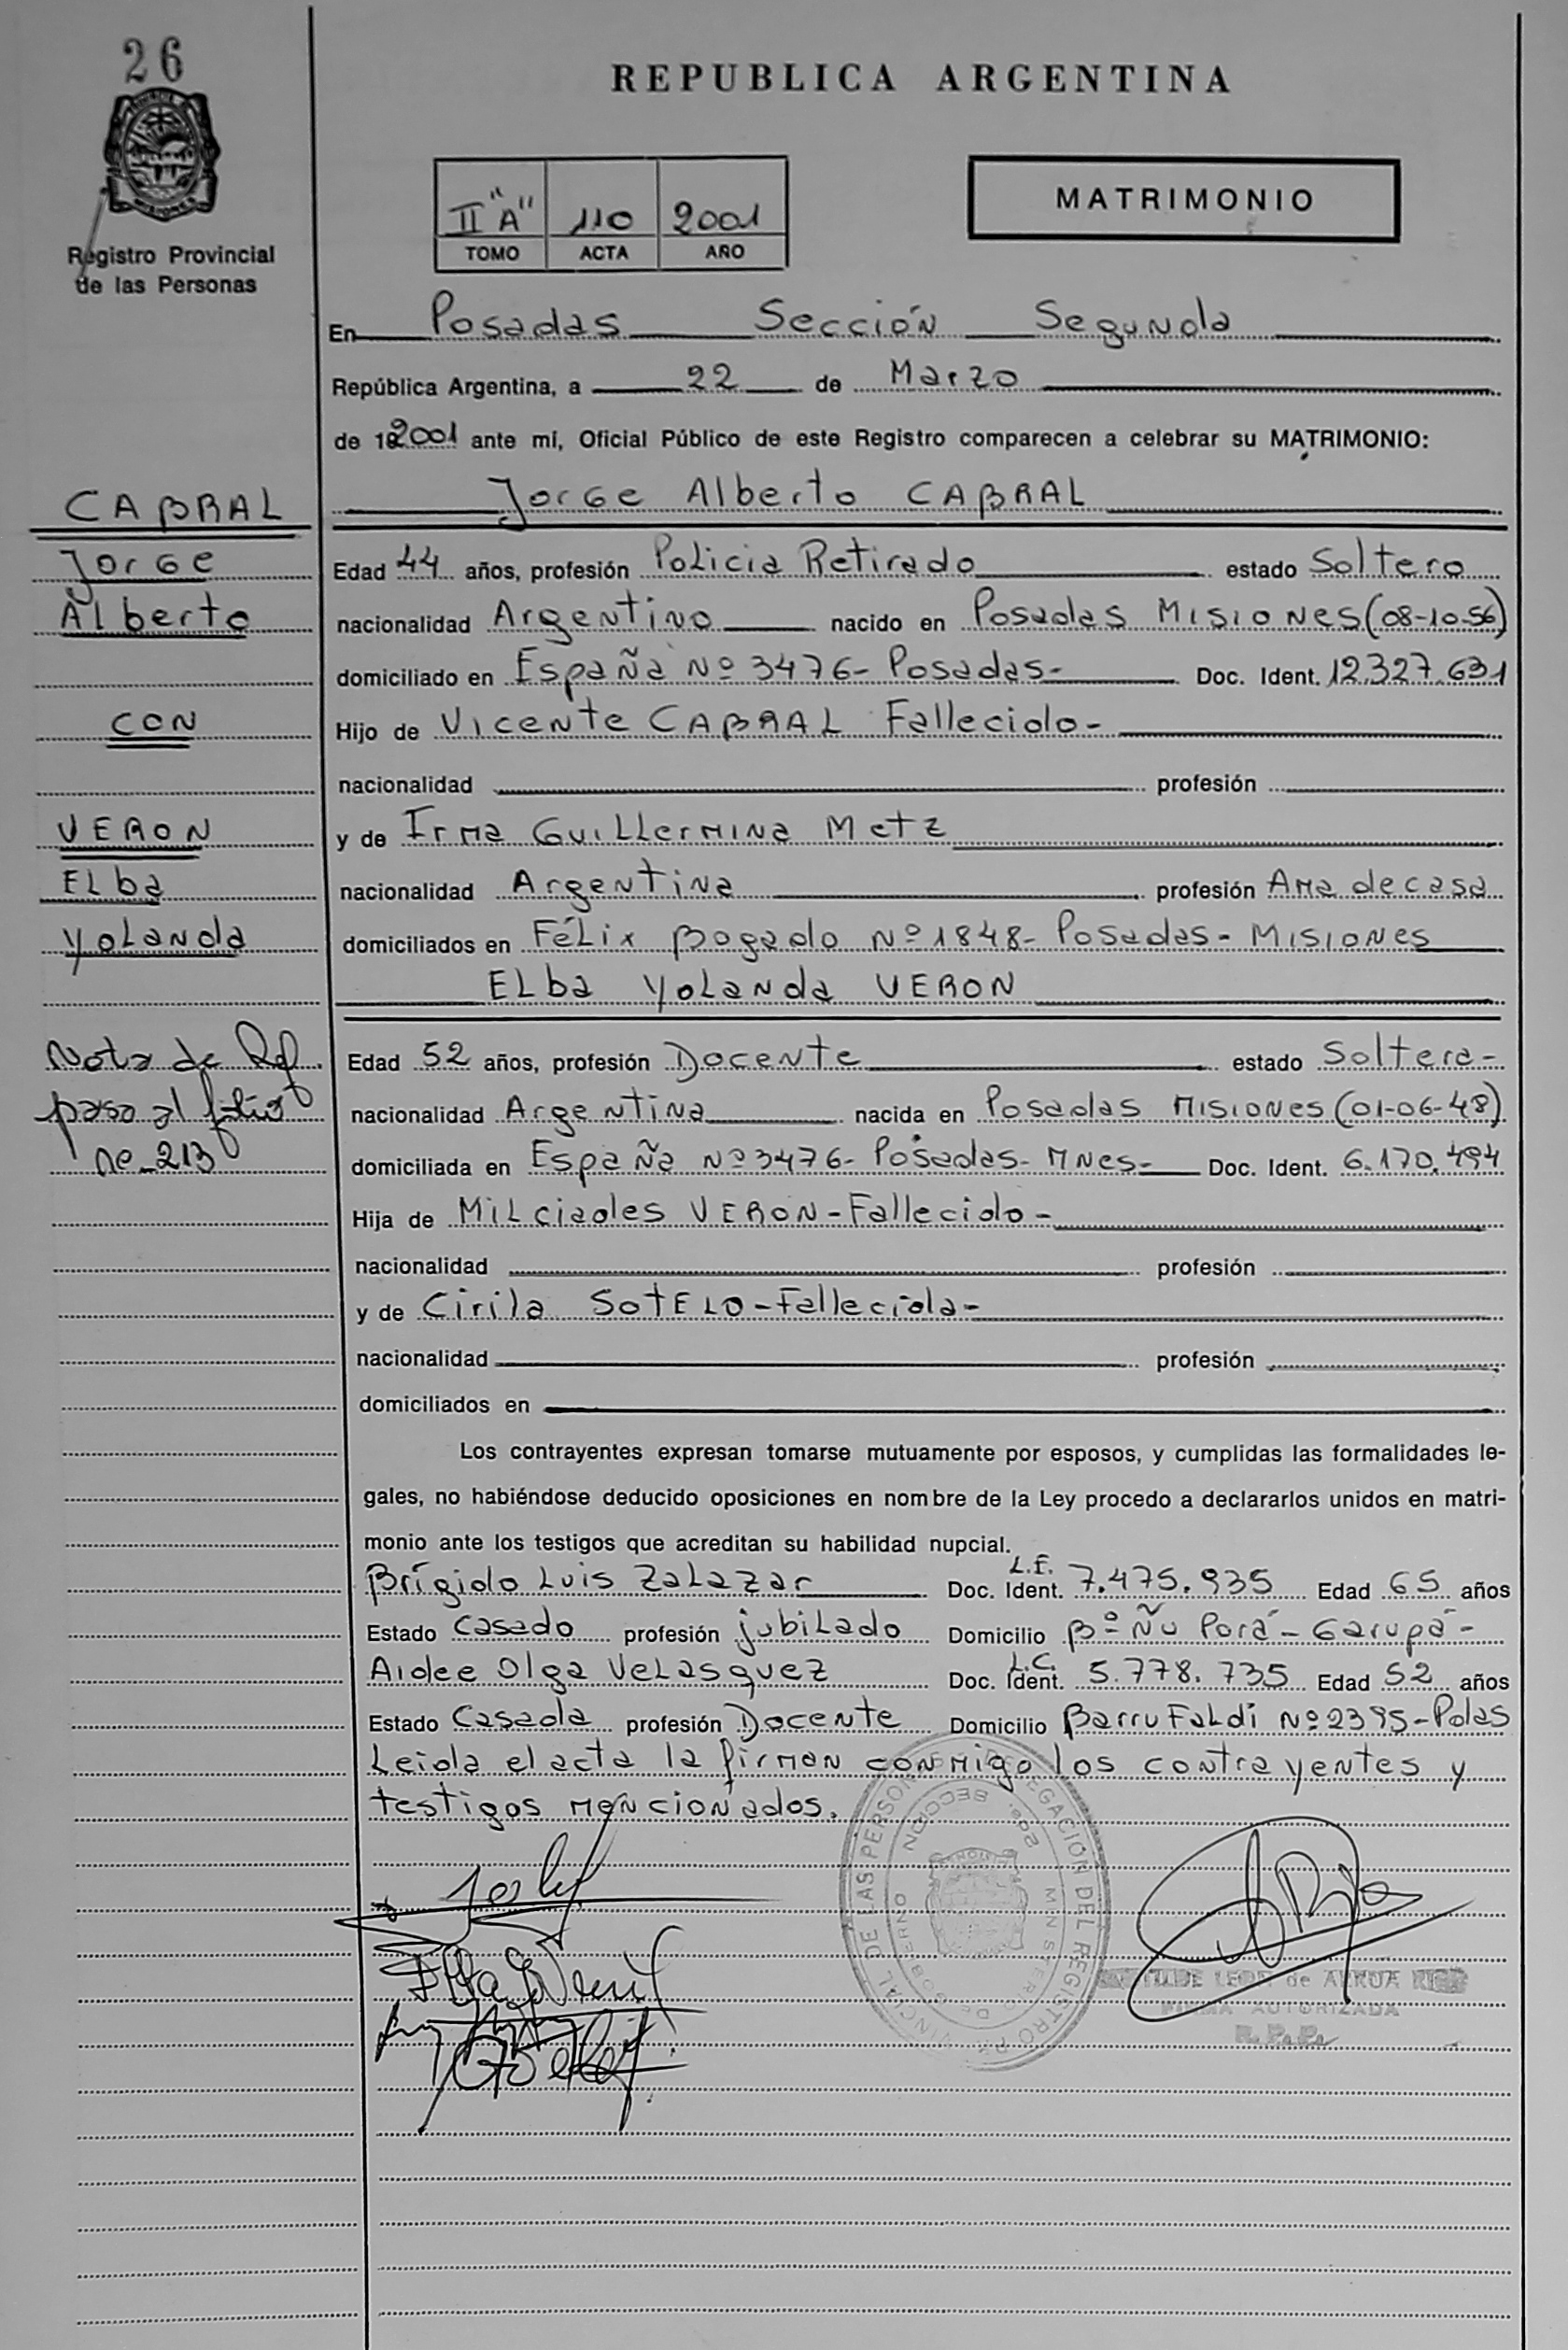 26
REPUBLICA ARGENTINA
MISIONES
Registro Provincial
de las Personas
II "A" 110 2001
TOMO ACTA AÑO
MATRIMONIO
En Posadas Sección Segunda
República Argentina, a 22 de Marzo
de 2001 ante mí, Oficial Público de este Registro comparecen a celebrar su MATRIMONIO:
CABRAL
Jorge
Alberto
CON
VERON
Elba
Yolanda
Nota de Ref.
pasa al folio
no 213
Jorge Alberto CABRAL
Edad 44 años, profesión Policia Retirado estado Soltero
nacionalidad Argentino nacido en Posadas Misiones (08-10-56)
domiciliado en España Nº 3476- Posadas- Doc. Ident. 12.327.631
Hijo de Vicente CABRAL Fallecido-
nacionalidad profesión
y de Irma Guillermina Metz
nacionalidad Argentina profesión Ama de casa
domiciliados en Félix Bogado Nº 1848- Posadas- Misiones
Elba Yolanda VERON
Edad 52 años, profesión Docente estado Soltera-
nacionalidad Argentina nacida en Posadas Misiones (01-06-48)
domiciliada en España Nº 3476- Posadas- Mnes- Doc. Ident. 6.170.494
Hija de Milciades VERON-Fallecido-
nacionalidad profesión
y de Cirila SOTELO-Fallecida-
nacionalidad profesión
domiciliados en
Los contrayentes expresan tomarse mutuamente por esposos, y cumplidas las formalidades le-
gales, no habiéndose deducido oposiciones en nombre de la Ley procedo a declararlos unidos en matri-
monio ante los testigos que acreditan su habilidad nupcial.
Brígido Luis Zalazar Doc. Ident. L.E. 7.475.935 Edad 65 años
Estado Casado profesión jubilado Domicilio Bº Ñu Porá- Garupá-
Aidee Olga Velasquez Doc. Ident. L.C. 5.778.735 Edad 52 años
Estado Casada profesión Docente Domicilio Barrufaldi Nº 2395-Pdas
Leida el acta la firman conmigo los contrayentes y
testigos mencionados.
DELEGACION DEL REGISTRO PROVINCIAL DE LAS PERSONAS
SECCION 2da.
MINISTERIO DE GOBIERNO
LEON de ARRUA
FIRMA AUTORIZADA
R. P. P.